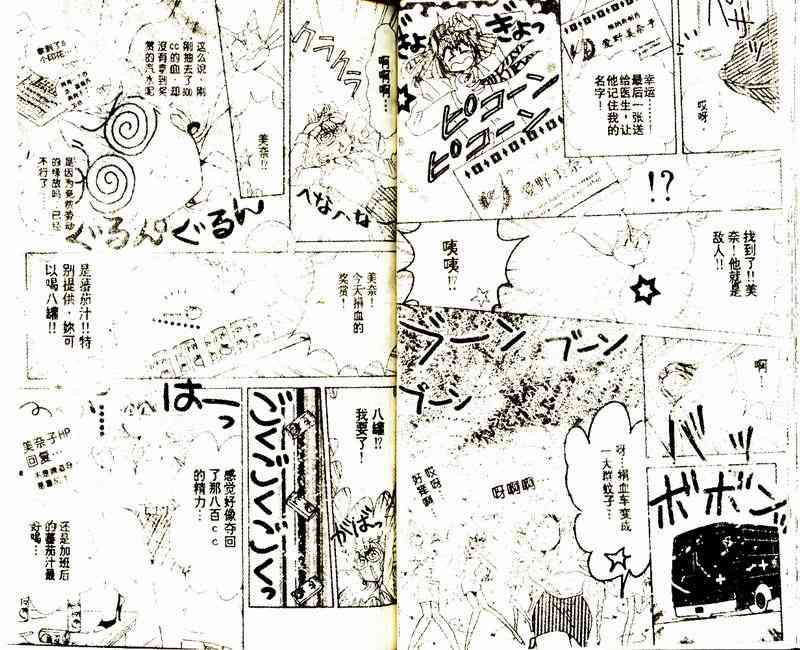 愛野美奈子
幸运……！
最后一张送
给医生，让
他记住我的
名字！
哎呀．
ぎょっ
ぎょっ
ピコーン
ピコーン
愛野美奈
!?
找到了!!美
奈！他就是
敌人!!
咦
咦!?
啊！
ブーン
ブーン
ブーン
バッ
ボボン
呀！捐血车变成
一大群蚊子…
呀啊啊
哎呀
好痒
啊！
啊啊啊…
クラクラ
へなへな
美奈!?
这么说，刚
刚抽去了800
cc的血，却
没有拿到奖
赏的汽水呢
拿到了8
小印花…
是因为免费劳动
的缘故吗，已经
不行了…
ぐるんぐるん
美奈！
今天捐血的
奖赏！
是蕃茄汁!!特
别提供，妳可
以喝八罐!!
……
八罐!?
我要了！
がばっ
ごくごくごくごくっ
感觉好像夺回
了那八百cc
的精力…
はーっ
美奈子HP
回复…
还是加班后
的蕃茄汁最
好喝…